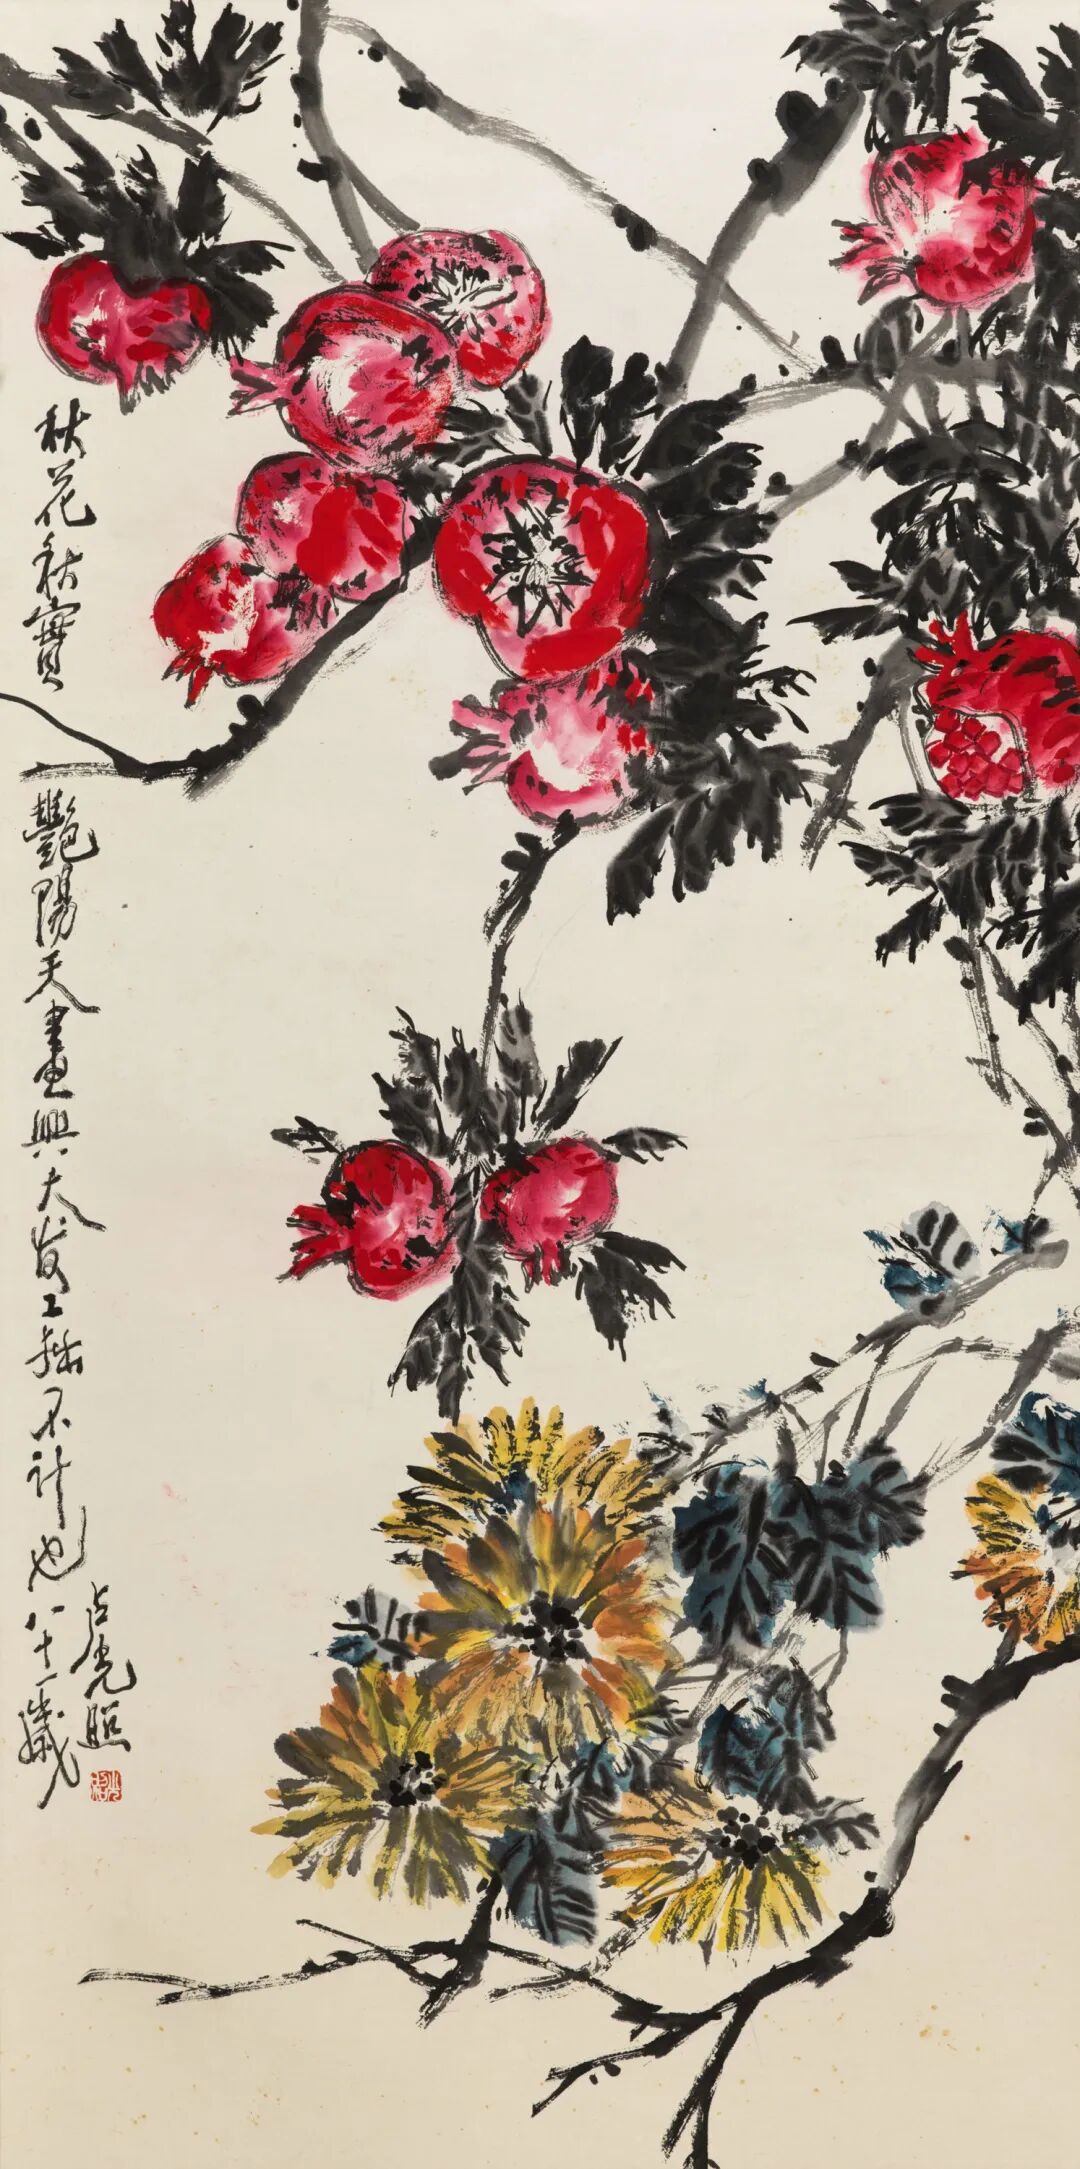 秋花秋實
艷陽天畫興大发工拙不计也八十一歲
占光照